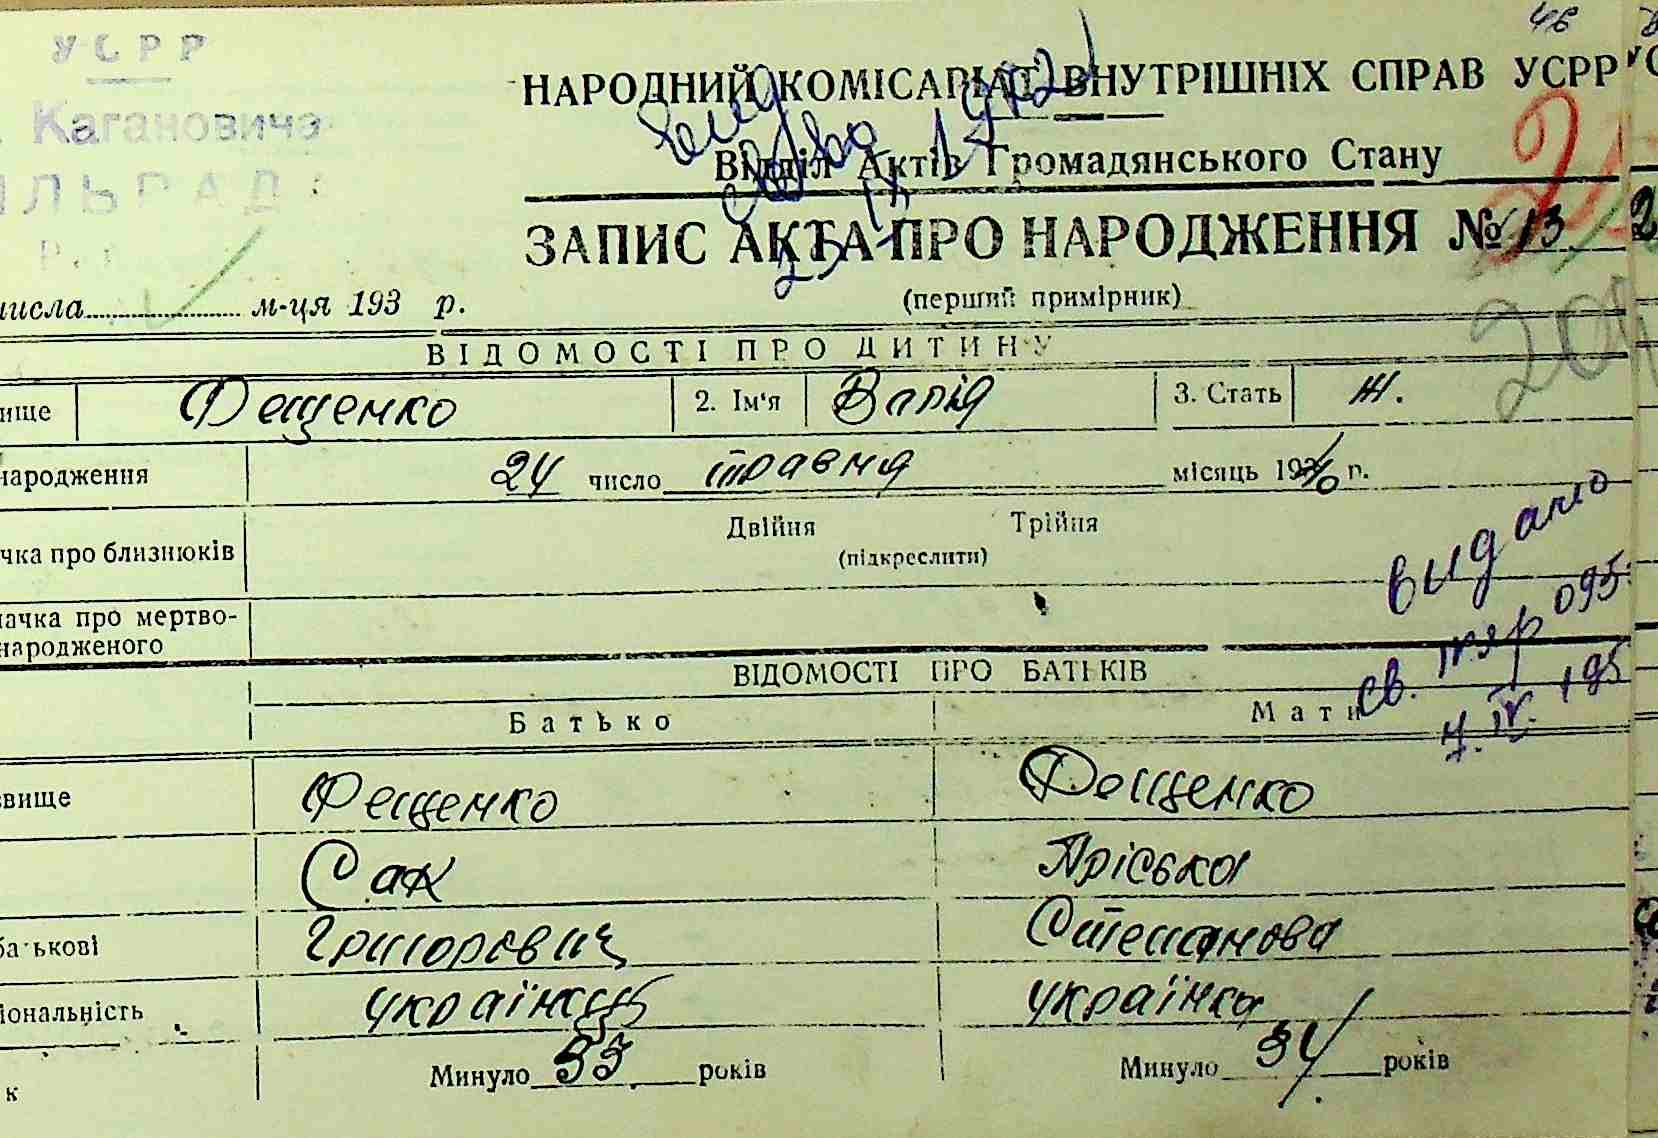 УСРР
Кагановича
НАРОДНИЙ КОМІСАРІАТ ВНУТРІШНІХ СПРАВ УСРР
Відділ Актів Громадянського Стану
ЗАПИС АКТА ПРО НАРОДЖЕННЯ № 13
(перший примірник)
числа м-ця 193 р.
ВІДОМОСТІ ПРО ДИТИНУ
ище Фещенко 2. Ім'я Варія 3. Стать ж.
народження 24 число травня місяць 19 р.
чка про близнюків Двійня Трійня
(підкреслити)
ачка про мертво-
народженого
видано
св. 095
7.IV. 195
ВІДОМОСТІ ПРО БАТЬКІВ
Батько Мати
вище Фещенко Фещенко
Сак Пріська
батькові Григоревич Степанова
іональність українець українка
к Минуло 35 років Минуло 34 років